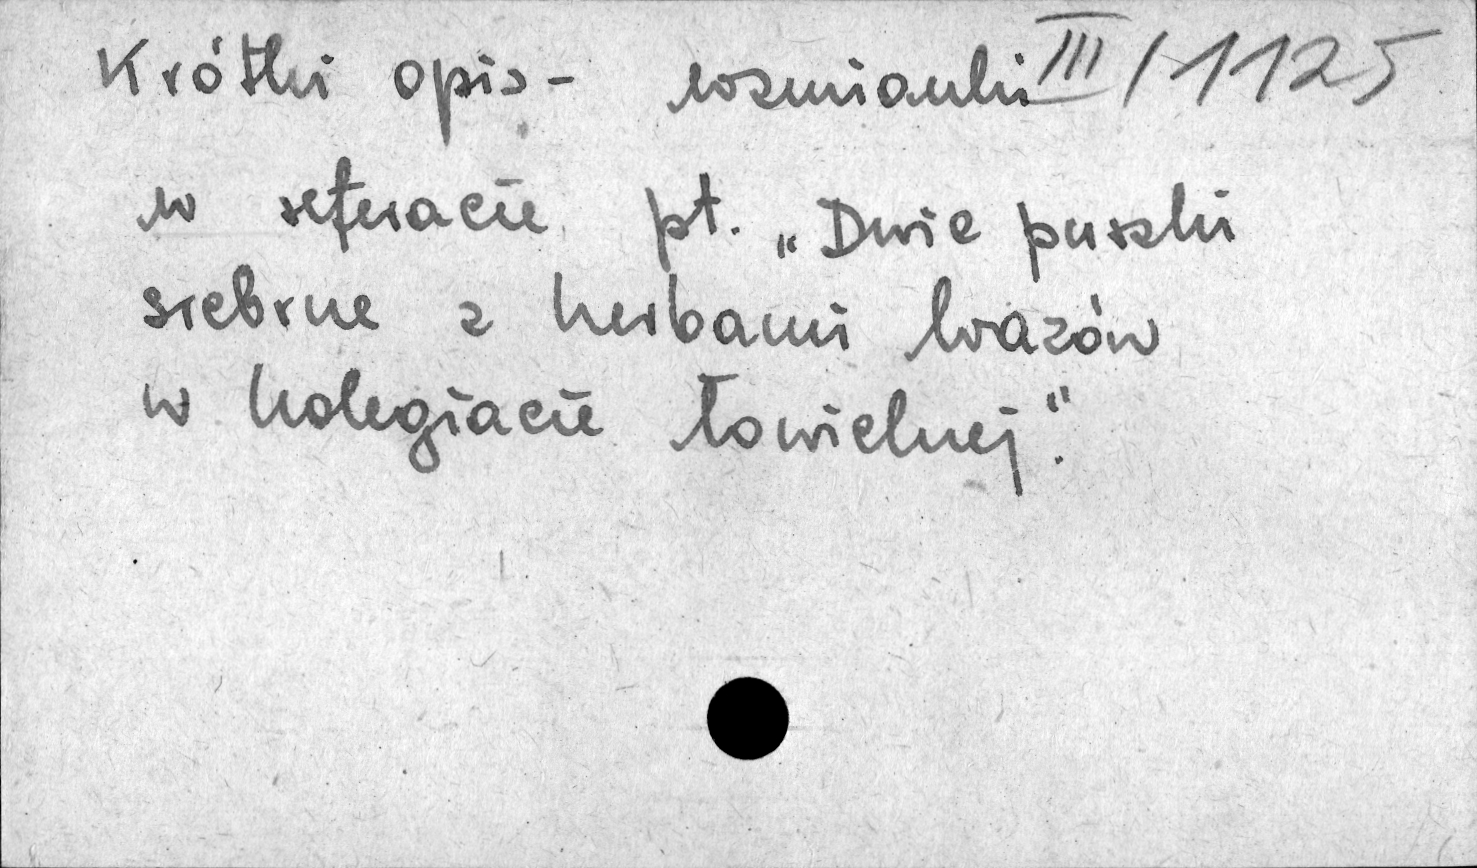 Krótki opis - wzmianki III/1125
w referacie pt. „Dwie puszki
srebrne z herbami królów
w kolegiacie łowickiej".